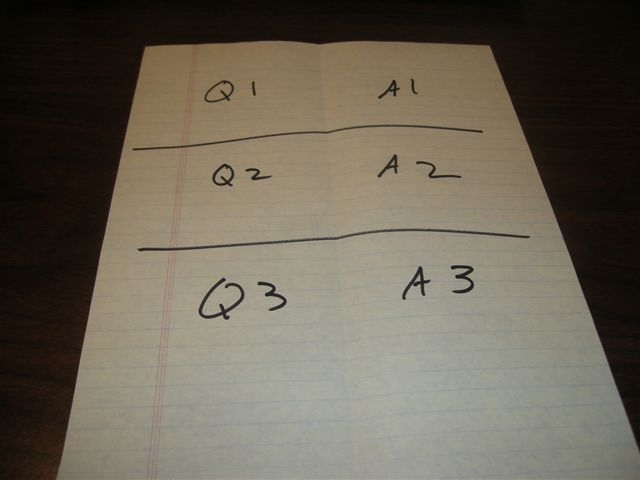 Q1 A1
Q2 A2
Q3 A3